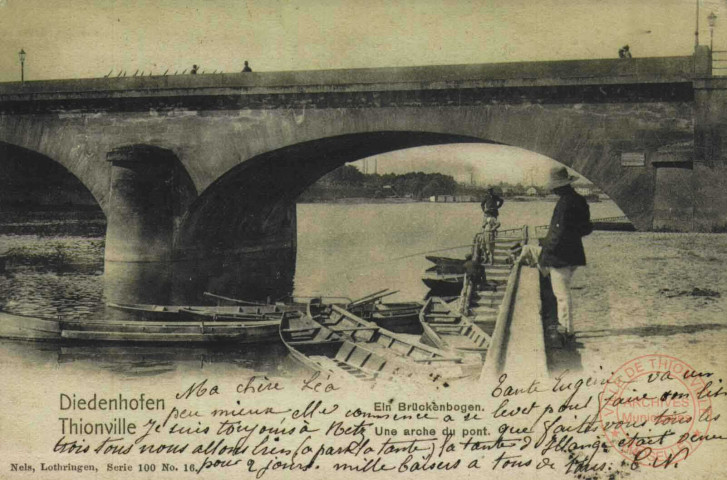 Diedenhofen
Thionville
Ein Brückenbogen.
Une arche du pont.
Nels, Lothringen, Serie 100 No. 16.
Ma chère Léa
Tante Eugénie va un
peu mieux elle commence à se lever pour faire son lit
Je suis toujours à Metz que faites vous tous les
trois tous nous allons bien (à part la tante) la tante d'Illange était venue
pour 2 jours. mille baisers à tous de
VILLE DE THIONVILLE
ARCHIVES
Municipales